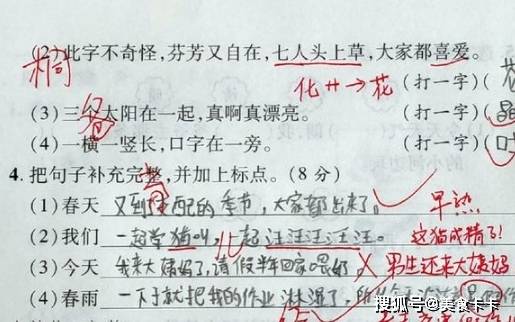 (2)此字不奇怪,芬芳又自在,七人头上草,大家都喜爱。
桐
化艹→花 (打一字)(花
(3)三个太阳在一起,真啊真漂亮。 (打一字)(晶
(4)一横一竖长,口字在一旁。 (打一字)(叶
4.把句子补充完整,并加上标点。(8分)
(1)春天 又到 配的季节,大家都出来了。 早熟
(2)我们 一起学猫叫,一起汪汪汪汪汪。 这猫成精了!
(3)今天 我来大姨妈了,请假半年回家喂奶。 × 男生还来大姨妈
(4)春雨 一下子就把我的作业淋湿了,
搜狐号@美食卡卡